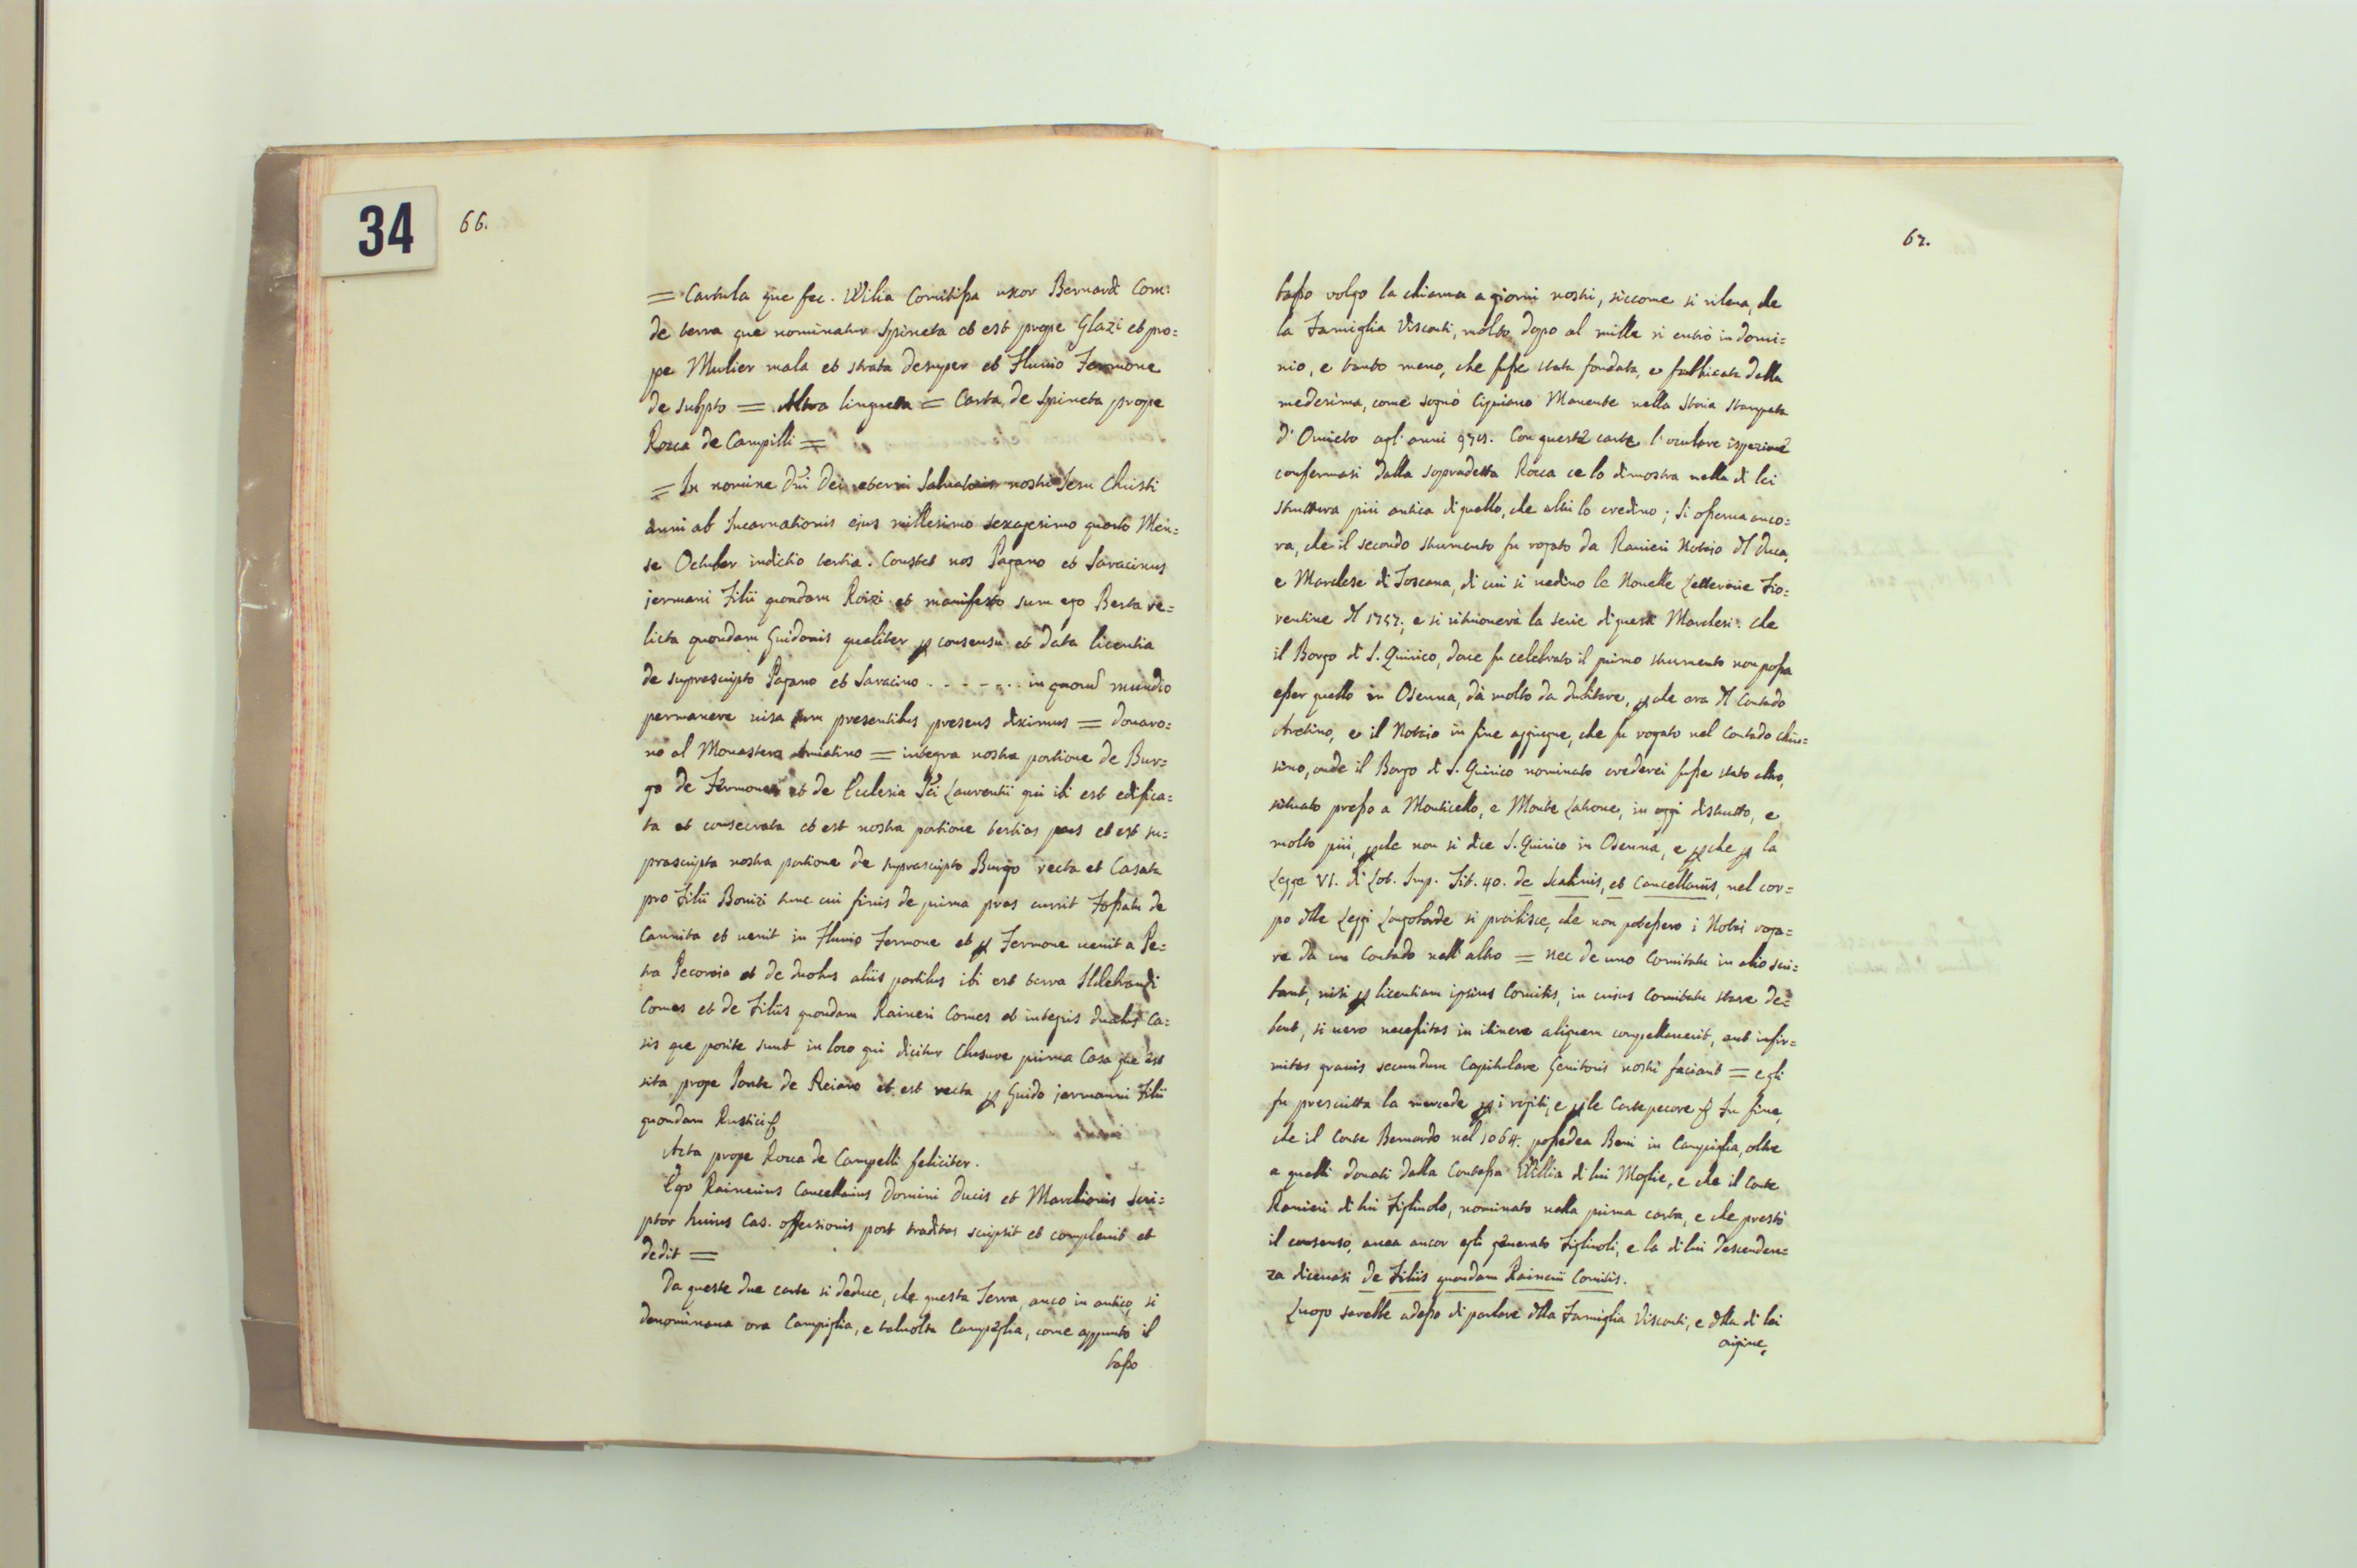 34
66.
= Cartula que fec. Willia Comitissa uxor Bernardi Com:
de terra que nominatur Spineta et est prope Glazi et pro=
pe Mulier mala et strata desuper et Fluvio Formone
de subpto = Altra linguetta = Carta de Spineta prope
Rocca de Campilli =
= In nomine Dñi Dei eterni Salvatoris nostri Jesu Christi
anni ab Incarnationis ejus millesimo sexagesimo quarto Men=
se Octuber indictio tertia. Constat nos Pagano et Saracinus
jermani Filii quondam Roizi et manifesto sum ego Berta re=
licta quondam Guidonis qualiter p consensu et data licentia
de suprascripto Pagano et Saracino . - - - . . in quorũ mundio
permanere visa sum presentibus presens diximus = donaro=
no al Monastero Amiatino = integra nostra portione de Bur=
go de Formone et de Ecclesia Sči Laurentii qui ibi est edifica=
ta et consecrata et est nostra portione tertias pars et est su=
prascripta nostra portione de suprascripto Burgo recta et Casata
pro Filii Bonizi tunc cui finis de prima pras currit Fossatu de
Cannita et venit in Fluvio Formone et p Formone venit a Pe=
tra Pecoraia et de duobus aliis partibus ibi est terra Ildebrandi
Comes et de Filiis quondam Raineri Comes et integris duabus ca=
sis que posite sunt in loco qui dicitur Clusure prima Casa que est
sita prope Ponte de Reiano et est recta p Guido jermanni Filii
quondam Rustici &
Acta prope Rocca de Campelli feliciter.
Ego Rainerius Cancellarius Domini Ducis et Marchionis scri=
ptor huius Cas. offersionis post traditas scripsit et complevit et
dedit =
Da queste due carte si deduce, che questa Terra, anco in antico, si
denominava ora Campiglia, e talvolta Campeglia, come appunto il
basso
67.
basso volgo la chiama a giorni nostri, siccome si rileva, che
la Famiglia Visconti, molto dopo al mille vi entrò in domi=
nio, e tanto meno, che fosse stata fondata, e fabbricata dalla
medesima, come sognò Cipriano Manente nella Storia stampata
d'Orvieto agl'anni 975. Con queste carte l'oculare ispezione
confermasi dalla sopradetta Rocca ce lo dimostra nella di lei
struttura più antica di quello, che altri lo credino; Si osserva anco=
ra, che il secondo strumento fu rogato da Ranieri Notaio dl Duca,
e Marchese di Toscana, di cui si vedino le Novelle Letterarie Fio=
rentine dl 1757; e si ritroverà la serie di questi Marchesi. Che
il Borgo di S. Quirico, dove fu celebrato il primo strumento non possa
esser quello in Osenna, dà molto da dubitare, p che era dl Contado
Aretino, e il Notaio in fine aggiugne, che fu rogato nel Contado chiu=
sino, onde il Borgo di S. Quirico nominato crederei fosse stato altro,
situato presso a Monticello, e Monte Latrone, in oggi distrutto, e
molto più, pche non si dice S. Quirico in Osenna, e pche p la
Legge VI. di Lot. Imp. Tit. 40. de Scabinis, et Cancellariis, nel cor=
po dlle Leggi Longobarde si proibisce, che non potessero i Notai roga=
re da un Contado nell'altro = nec de uno Comitatu in alio scri=
bant, nisi p licentiam ipsius Comitis, in cuius Comitatu stare de=
bent, si vero necessitas in itinere aliquem compellaverit, aut infir=
mitas gravis secundum Capitulare Genitoris nostri faciant = e gli
fu prescritta la mercede p i rogiti, e p le Cartepecore & In fine,
che il Conte Bernardo nel 1064. possedea Beni in Campiglia, oltre
a quelli donati dalla Contessa Willia di lui Moglie, e che il Conte
Ranieri di lui Figliuolo, nominato nella prima carta, e che prestò
il consenso, avea ancor egli generato Figliuoli, e la di lui descenden=
za diceuasi de Filiis quondam Rainerii Comitis.
Luogo sarebbe adesso di parlare dlla Famiglia Visconti, e dlla di lei
origine,